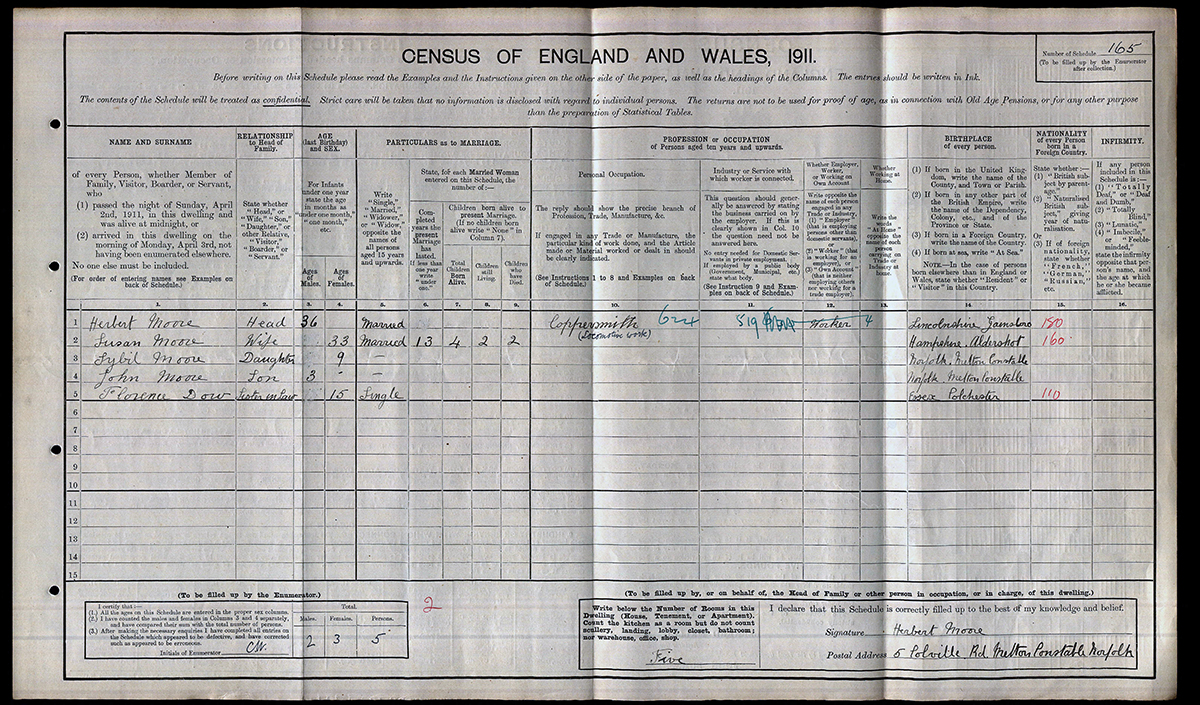 CENSUS OF ENGLAND AND WALES, 1911.
Number of Schedule 165
(To be filled up by the Enumerator after collection.)
Before writing on this Schedule please read the Examples and the Instructions given on the other side of the paper, as well as the headings of the Columns. The entries should be written in Ink.
The contents of the Schedule will be treated as confidential. Strict care will be taken that no information is disclosed with regard to individual persons. The returns are not to be used for proof of age, as in connection with Old Age Pensions, or for any other purpose
than the preparation of Statistical Tables.
NAME AND SURNAME
of every Person, whether Member of
Family, Visitor, Boarder, or Servant,
who
(1) passed the night of Sunday, April
2nd, 1911, in this dwelling and
was alive at midnight, or
(2) arrived in this dwelling on the
morning of Monday, April 3rd, not
having been enumerated elsewhere.
No one else must be included.
(For order of entering names see Examples on
back of Schedule.)
RELATIONSHIP
to Head of
Family.
State whether
"Head," or
"Wife," "Son,"
"Daughter," or
other Relative,
"Visitor,"
"Boarder," or
"Servant."
AGE
(last Birthday)
and SEX.
For Infants
under one year
state the age
in months as
"under one month,"
"one month,"
etc.
Ages of Males.
Ages of Females.
PARTICULARS as to MARRIAGE.
Write
"Single,"
"Married,"
"Widower,"
or "Widow,"
opposite the
names of
all persons
aged 15 years
and upwards.
State, for each Married Woman
entered on this Schedule, the
number of:—
Completed years the present Marriage has lasted.
If less than one year write "under one."
Children born alive to
present Marriage.
(If no children born
alive write "None" in
Column 7).
Total Children Born Alive.
Children still Living.
Children who have Died.
PROFESSION or OCCUPATION
of Persons aged ten years and upwards.
Personal Occupation.
The reply should show the precise branch of
Profession, Trade, Manufacture, &c.
If engaged in any Trade or Manufacture, the
particular kind of work done, and the Article
made or Material worked or dealt in should
be clearly indicated.
(See Instructions 1 to 8 and Examples on back
of Schedule.)
Industry or Service with
which worker is connected.
This question should generally
be answered by stating
the business carried on by
the employer. If this is
clearly shown in Col. 10
the question need not be
answered here.
No entry needed for Domestic Servants
in private employment.
If employed by a public body
(Government, Municipal, etc.)
state what body.
(See Instruction 9 and Examples
on back of Schedule.)
Whether Employer,
Worker,
or Working on
Own Account
Write opposite the
name of each person
engaged in any
Trade or Industry,
(1) "Employer"
(that is employing
persons other than
domestic servants),
or
(2) "Worker" (that
is working for an
employer), or
(3) "Own Account"
(that is neither
employing others
nor working for a
trade employer).
Whether
Working at
Home.
Write the words
"At Home"
opposite the
name of each
person
carrying on
Trade or
Industry at
home.
BIRTHPLACE
of every person.
(1) If born in the United Kingdom,
write the name of the
County, and Town or Parish.
(2) If born in any other part of
the British Empire, write
the name of the Dependency,
Colony, etc., and of the
Province or State.
(3) If born in a Foreign Country,
write the name of the Country.
(4) If born at sea, write "At Sea."
NOTE.—In the case of persons
born elsewhere than in England or
Wales, state whether "Resident" or
"Visitor" in this Country.
NATIONALITY
of every Person
born in a
Foreign Country.
State whether:—
(1) "British subject
by parentage."
(2) "Naturalised
British subject,"
giving
year of naturalisation.
Or
(3) If of foreign
nationality,
state whether
"French,"
"German,"
"Russian,"
etc.
INFIRMITY.
If any person
included in this
Schedule is:—
(1) "Totally
Deaf," or "Deaf
and Dumb,"
(2) "Totally
Blind,"
(3) "Lunatic,"
(4) "Imbecile,"
or "Feeble-minded,"
state the infirmity
opposite that person's
name, and
the age at which
he or she became
afflicted.
1. 2. 3. 4. 5. 6. 7. 8. 9. 10. 11. 12. 13. 14. 15. 16.
1 Herbert Moore Head 36 Married Coppersmith (Locomotive Work) 624 519 Worker 4 Lincolnshire Gainsboro 180
2 Susan Moore Wife 33 Married 13 4 2 2 Hampshire Aldershot 160
3 Sybil Moore Daughter 9 — Norfolk. Melton Constable
4 John Moore Son 3 - — Norfolk Melton Constable
5 Florence Dow Sister in Law 15 Single Essex Colchester 110
6
7
8
9
10
11
12
13
14
15
(To be filled up by the Enumerator.)
I certify that:—
(1.) All the ages on this Schedule are entered in the proper sex columns.
(2.) I have counted the males and females in Columns 3 and 4 separately,
and have compared their sum with the total number of persons.
(3.) After making the necessary enquiries I have completed all entries on
the Schedule which appeared to be defective, and have corrected
such as appeared to be erroneous.
Initials of Enumerator
Total.
Males. Females. Persons.
2 3 5
2
(To be filled up by, or on behalf of, the Head of Family or other person in occupation, or in charge, of this dwelling.)
Write below the Number of Rooms in this
Dwelling (House, Tenement, or Apartment).
Count the kitchen as a room but do not count
scullery, landing, lobby, closet, bathroom;
nor warehouse, office, shop.
Five
I declare that this Schedule is correctly filled up to the best of my knowledge and belief.
Signature Herbert Moore
Postal Address 5 Colville Rd. Melton Constable Norfolk